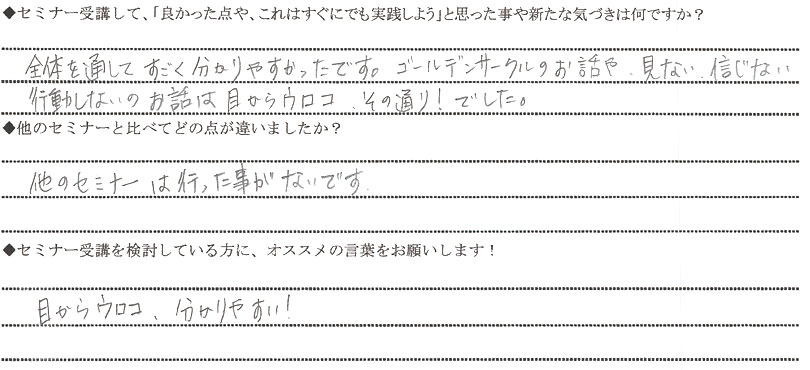 ◆セミナー受講して、「良かった点や、これはすぐにでも実践しよう」と思った事や新たな気づきは何ですか？
全体を通してすごく分かりやすかったです。ゴールデンサークルのお話や、見ない、信じない
行動しないのお話は目からウロコ、その通り！でした。
◆他のセミナーと比べてどの点が違いましたか？
他のセミナーは行った事がないです。
◆セミナー受講を検討している方に、オススメの言葉をお願いします！
目からウロコ、分かりやすい！